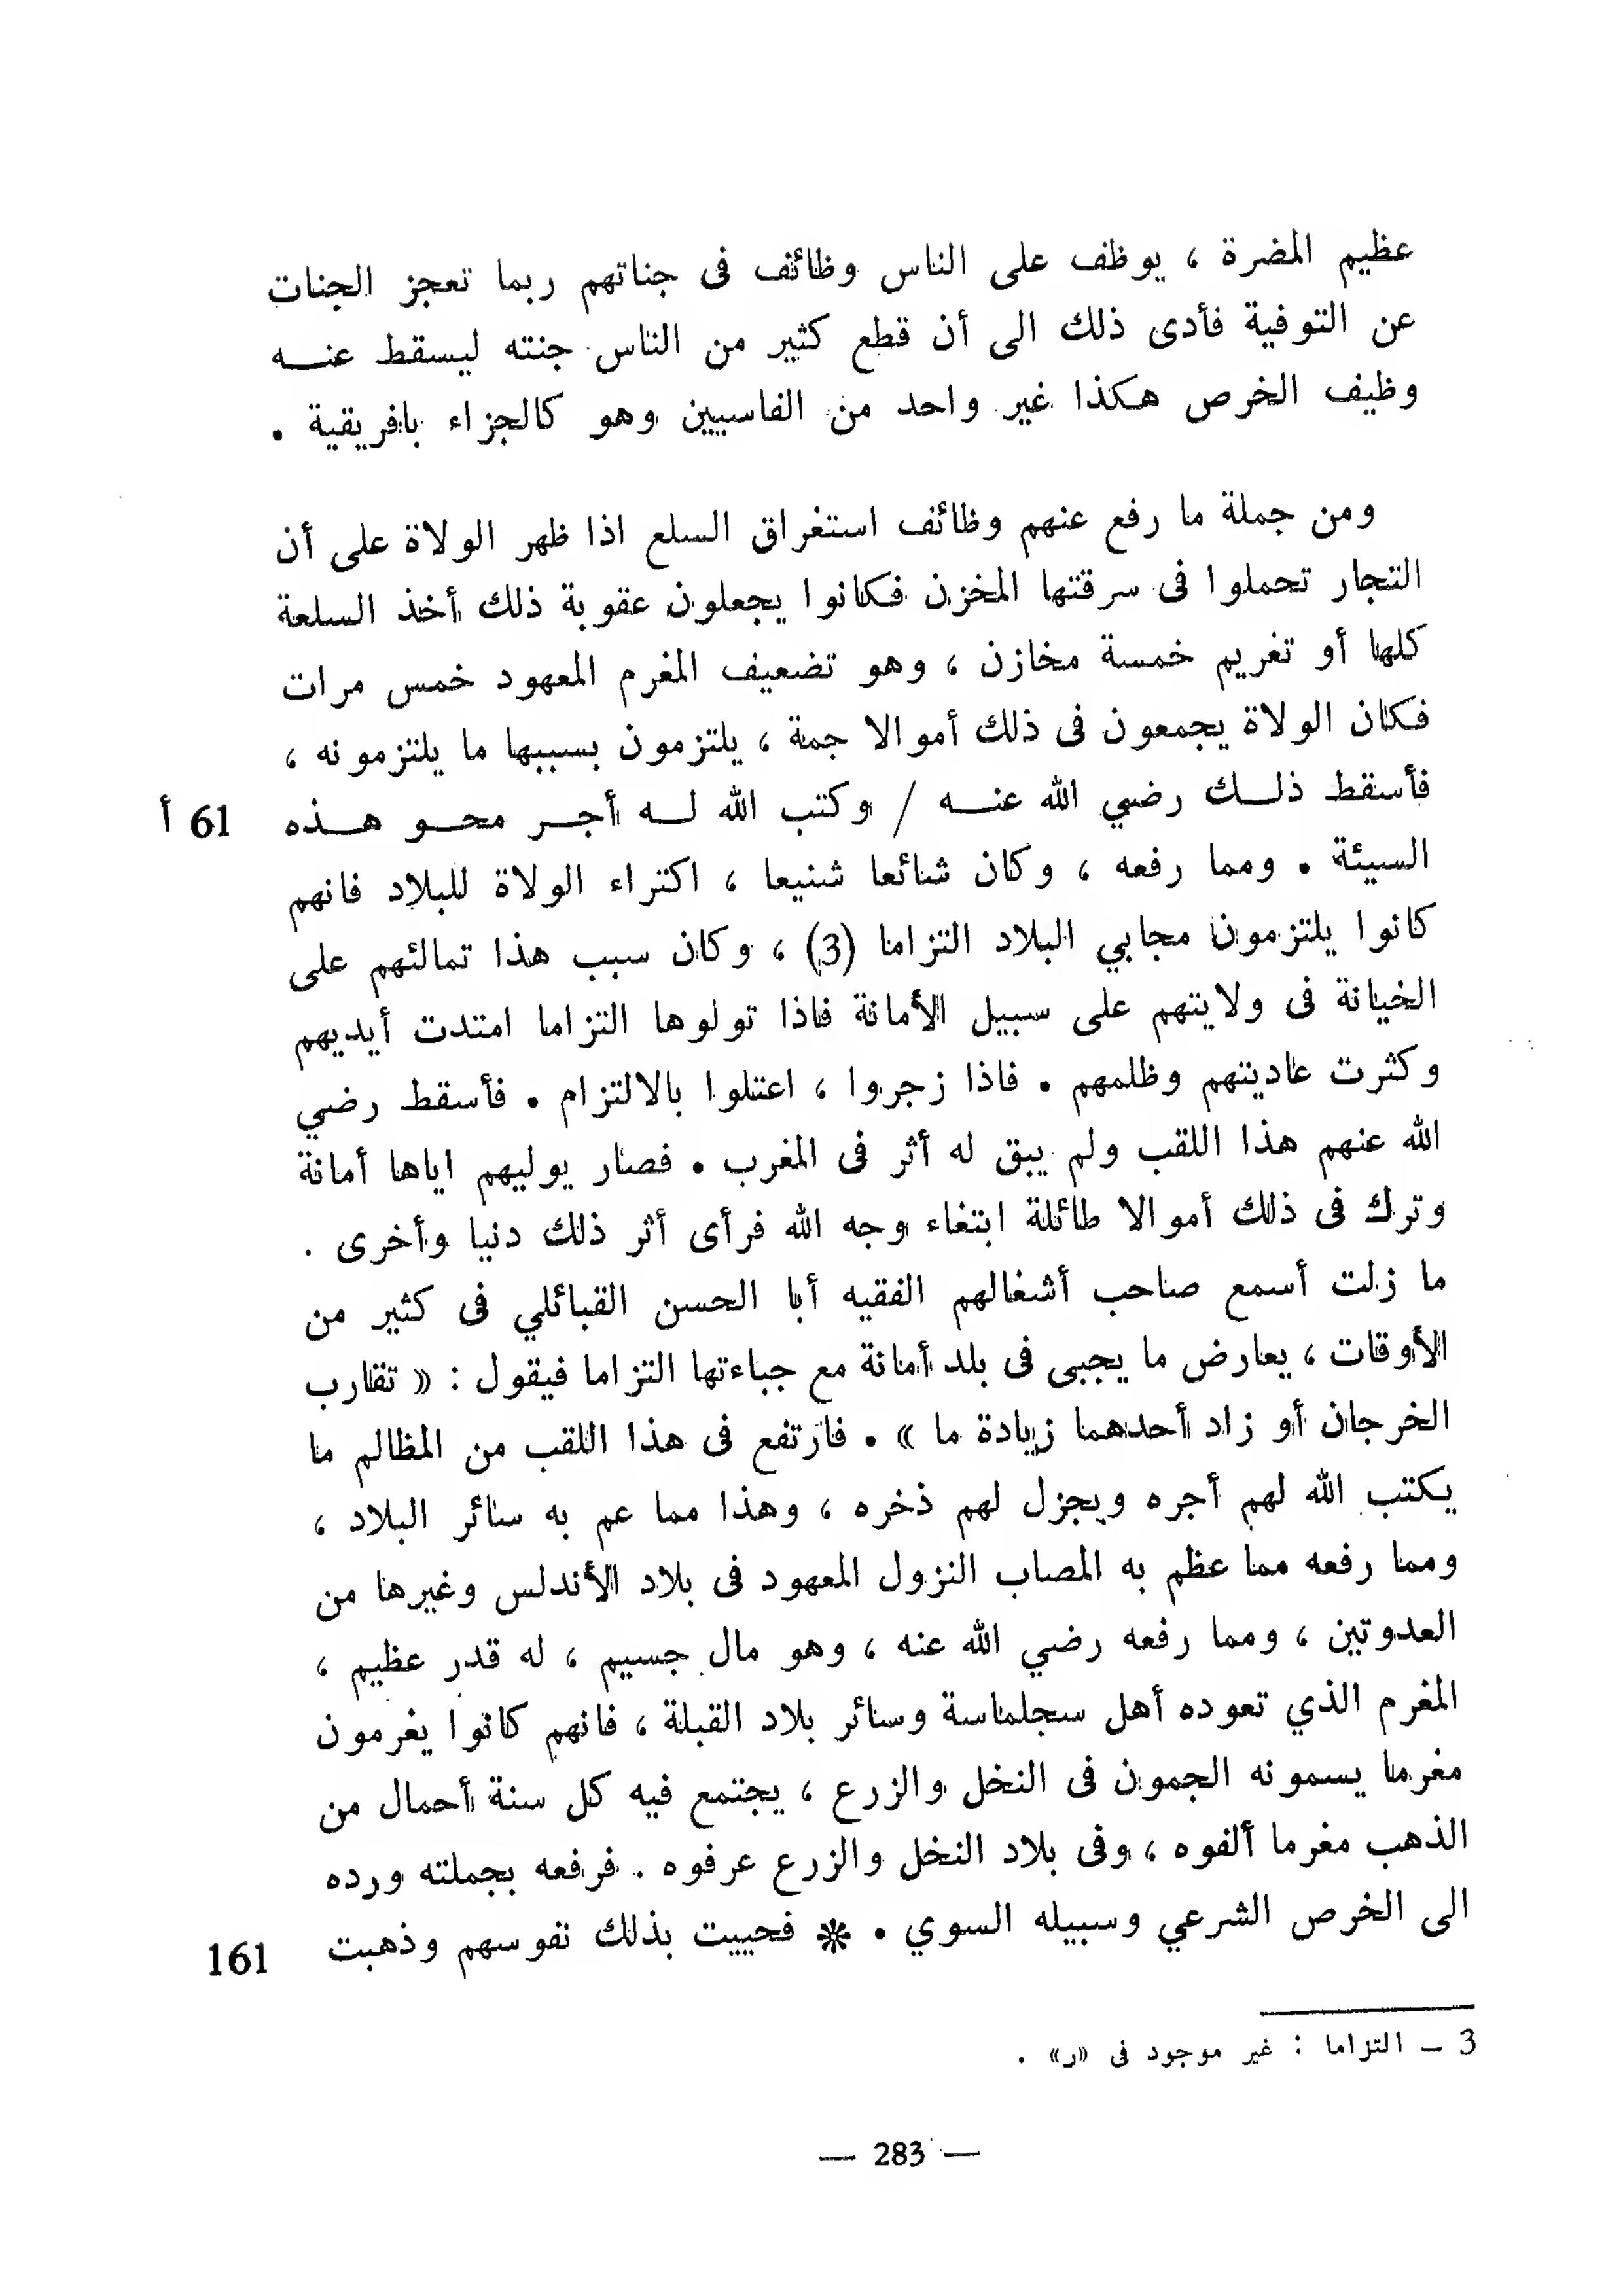 عظيم المضرة ، يوظف على الناس وظائف فى جناتهم ربما تعجز الجنات
عن التوفية فأدى ذلك الى أن قطع كثير من الناس جنته ليسقط عنــه
وظيف الخرص هكذا غير واحد من الفاسيين وهو كالجزاء بافريقية .
ومن جملة ما رفع عنهم وظائف استغراق السلع اذا ظهر الولاة على أن
التجار تحملوا فى سرقتها المخزن فكانوا يجعلون عقوبة ذلك أخذ السلعة
كلها أو تغريم خمسة مخازن ، وهو تضعيف المغرم المعهود خمس مرات
فكان الولاة يجمعون فى ذلك أموالا جمة ، يلتزمون بسببها ما يلتزمونه ،
فأسقط ذلــك رضي الله عنــه / وكتب الله لــه أجــر محــو هــذه 61 أ
السيئة . ومما رفعه ، وكان شائعا شنيعا ، اكتراء الولاة للبلاد فانهم
كانوا يلتزمون مجابي البلاد التزاما (3) ، وكان سبب هذا تمالئهم على
الخيانة فى ولايتهم على سبيل الأمانة فاذا تولوها التزاما امتدت أيديهم
وكثرت عاديتهم وظلمهم . فاذا زجروا ، اعتلوا بالالتزام . فأسقط رضي
الله عنهم هذا اللقب ولم يبق له أثر فى المغرب . فصار يوليهم اياها أمانة
وترك فى ذلك أموالا طائلة ابتغاء وجه الله فرأى أثر ذلك دنيا وأخرى .
ما زلت أسمع صاحب أشغالهم الفقيه أبا الحسن القبائلي فى كثير من
الأوقات ، يعارض ما يجبى فى بلد أمانة مع جباءتها التزاما فيقول : « تقارب
الخرجان أو زاد أحدهما زيادة ما » . فارتفع فى هذا اللقب من المظالم ما
يكتب الله لهم أجره ويجزل لهم ذخره ، وهذا مما عم به سائر البلاد ،
ومما رفعه مما عظم به المصاب النزول المعهود فى بلاد الأندلس وغيرها من
العدوتين ، ومما رفعه رضي الله عنه ، وهو مال جسيم ، له قدر عظيم ،
المغرم الذي تعوده أهل سجلماسة وسائر بلاد القبلة ، فانهم كانوا يغرمون
مغرما يسمونه الجمون فى النخل والزرع ، يجتمع فيه كل سنة أحمال من
الذهب مغرما ألفوه ، وفى بلاد النخل والزرع عرفوه . فرفعه بجملته ورده
الى الخرص الشرعي وسبيله السوي . * فحييت بذلك نفوسهم وذهبت 161
3 ـ التزاما : غير موجود فى «ر» .
— 283 —